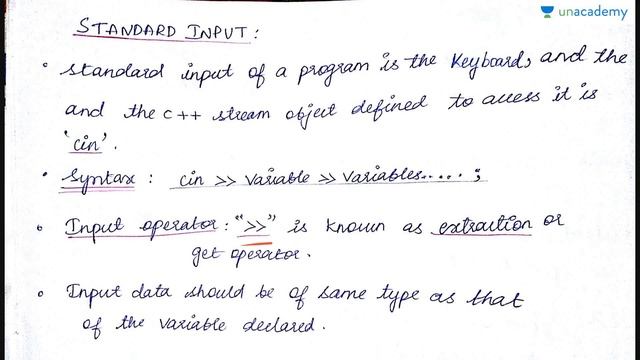 unacademy
STANDARD INPUT:
• Standard input of a program is the Keyboard, and the
and the C++ stream object defined to access it is
'cin'.
• Syntax : cin >> variable >> variables..... ;
• Input operator : ">>" is known as extraction or
get operator.
• Input data should be of same type as that
of the variable declared.